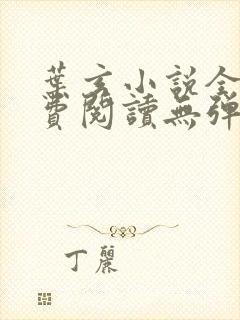 葉玄小說全
費閱讀無彈
丁麗